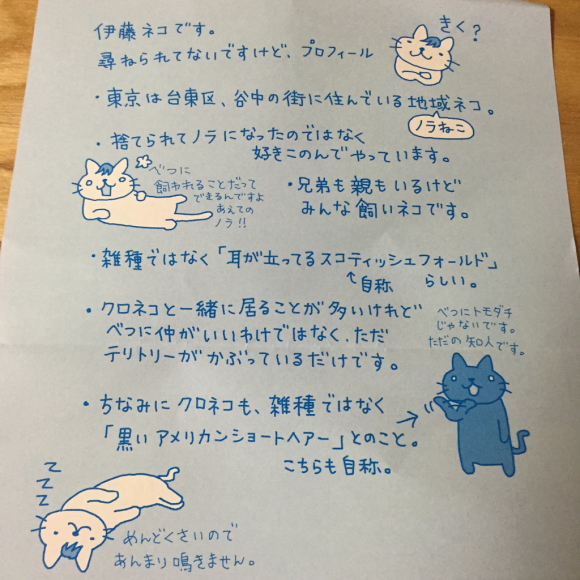 伊藤ネコです。
尋ねられてないですけど、プロフィール
きく?
・東京は台東区、谷中の街に住んでいる地域ネコ。
ノラねこ
・捨てられてノラになったのではなく
好きこのんでやっています。
べつに
飼われることだって
できるんですよ
あえての
ノラ!!
・兄弟も親もいるけど
みんな飼いネコです。
・雑種ではなく「耳が立ってるスコティッシュフォールド」
↑自称
らしい。
・クロネコと一緒に居ることが多いけれど
べつに仲がいいわけではなく、ただ
テリトリーがかぶっているだけです。
べつにトモダチ
じゃないです。
ただの知人です。
・ちなみにクロネコも、雑種ではなく
「黒いアメリカンショートヘアー」とのこと。
こちらも自称。
ZZZ
めんどくさいので
あんまり鳴きません。